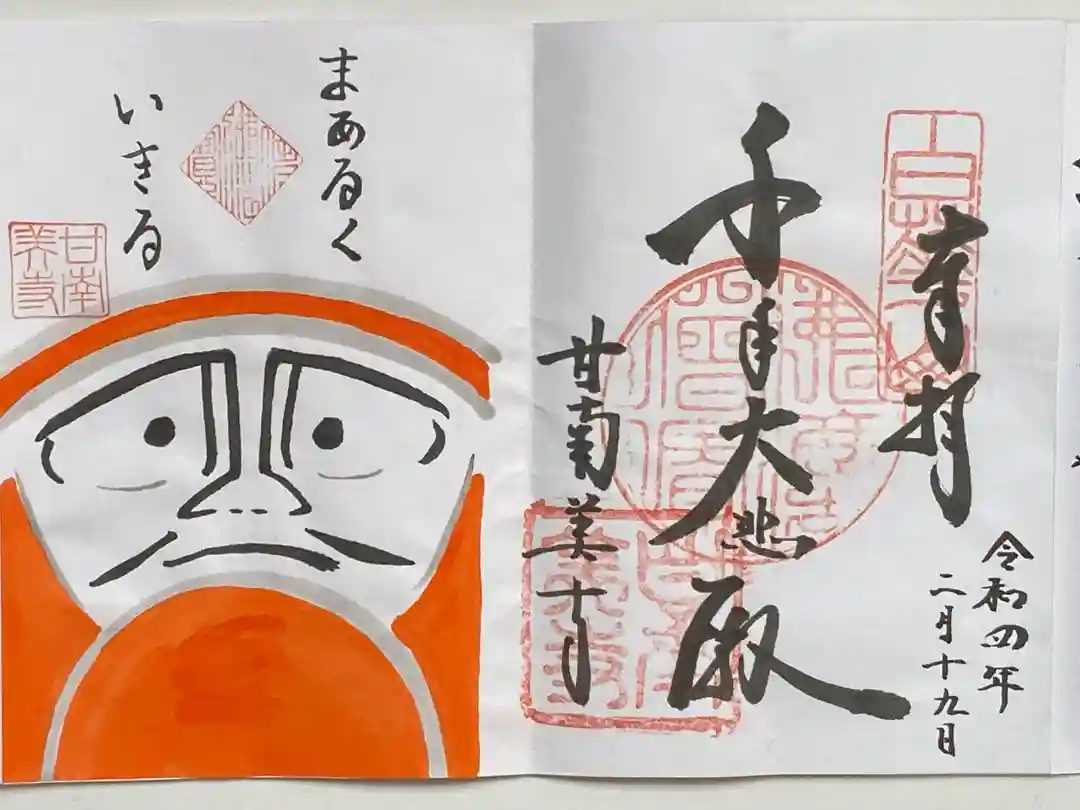 奉拝
令和四年
二月十九日
千手大悲殿
甘南美寺
まあるく
いきる
甘南
美寺